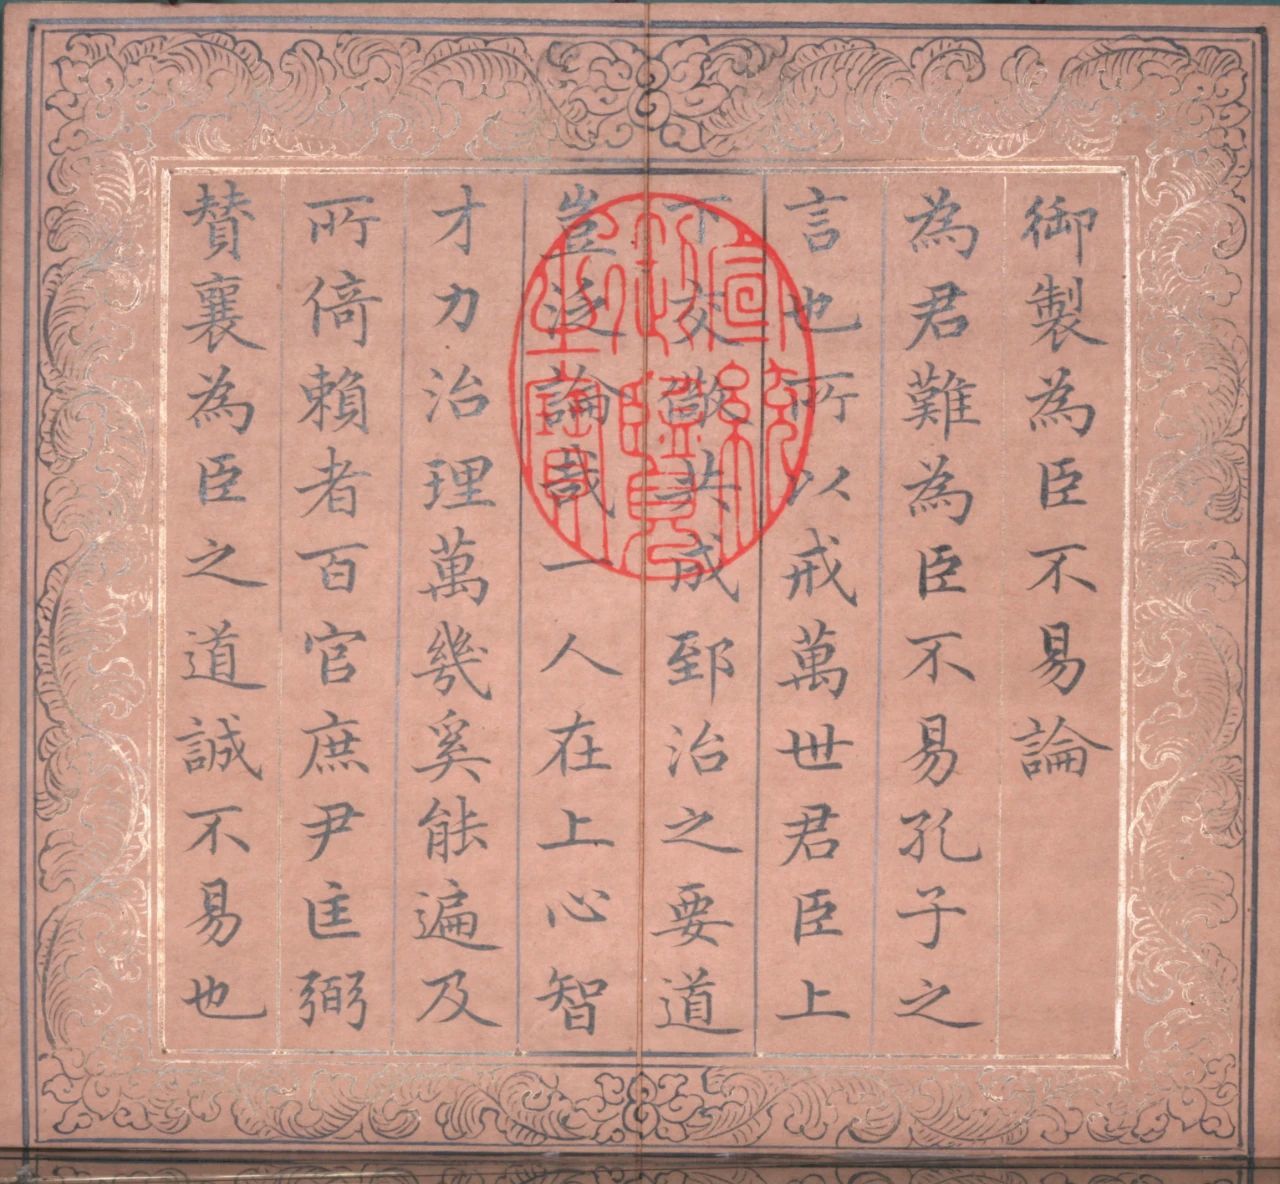 御製為臣不易論
為君難為臣不易孔子之
言也所以戒萬世君臣上
下交儆共成郅治之要道
豈泛論哉一人在上心智
才力治理萬幾奚能遍及
所倚賴者百官庶尹匡弼
贊襄為臣之道誠不易也
宣統御覽之寶